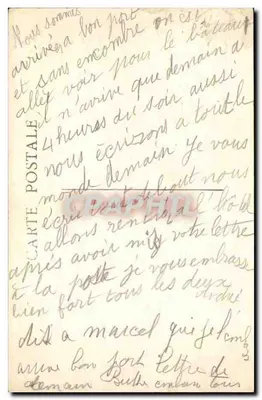 Nous sommes
arrivés a bon port
et sans encombre on est
aller voir pour le bateau
il n'arrive que demain a
4 heures du soir aussi
nous écrizons a tout le
monde demain. Je vous
écris debout nous
allons rentrer a l'
après avoir mis votre lettre
à la poste je vous embrasse
bien fort tous les deux
André
dis a marcel que je l'
arrive bon port lettre de
demain tous
CARTE POSTALE
CPAPHIL